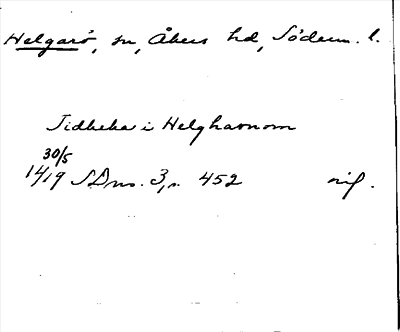 Helgarö, sn, Åkers hd, Söderm. l.
Tidheka i Helghaonom
30/5
1419 SDns. 3, s. 452 orig.